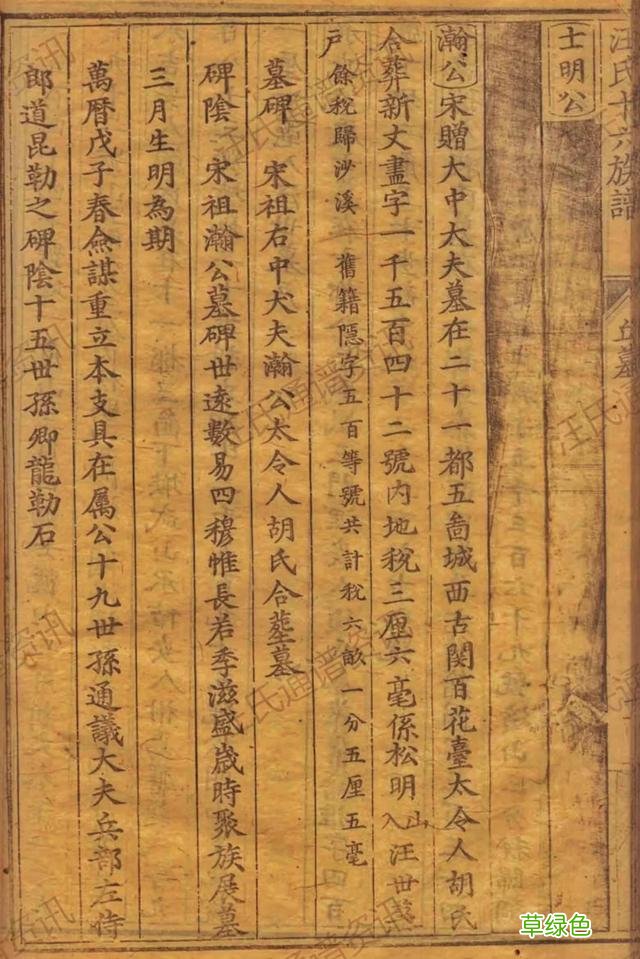 汪氏十六族譜
丘墓
士明公
瀚公宋贈大中大夫墓在二十一都五啚城西古関百花臺太令人胡氏
合葬新丈盡字一千五百四十二號內地稅三厘六毫係松明山入汪世
戶餘稅歸沙溪舊籍隱字五百等號共計稅六畝一分五厘五毫
墓碑宋祖右中大夫瀚公太令人胡氏合塟墓
碑陰宋祖瀚公墓碑世遠數易四穆惟長若季滋盛歲時聚族展墓
三月生明為期
萬曆戊子春僉謀重立本支具在属公十九世孫通議大夫兵部左侍
郎道昆勒之碑陰十五世孫卿龍勒石
汪氏通譜资讯
草绿色